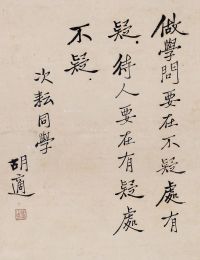 做學問要在不疑處有
疑．待人要在有疑處
不疑．
次耘同學
胡適